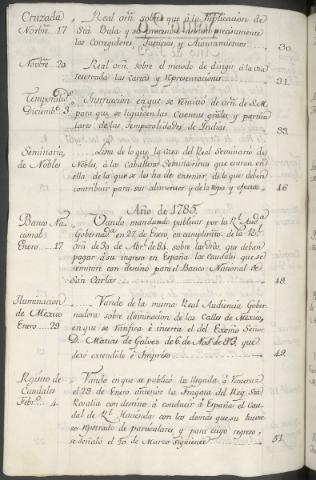 Cruzada
Novbre. 17
Real orn. sobre que á la Publicacion de
Sta. Bula y su
precisamente
los Corregidores, Justicias y Ayuntamientos 30.
Novbre. 20
Real orn. sobre el metodo de dirigir á la via
reservada las Cartas y representaciones 31.
Diciembe. 3
Instruccion en que se remitió de orn. de S.M.
para que se liquiden las Cuentas grales. y particu
lares de las Temporalidades de Indias. 33.
Seminario
de Nobles
Real Seminario de
Nobles, á los Caballeros Seminaristas que entren en
ella, de lo que se les ha de enseñar, de lo que deben
contribuir para sus alimentos y de la Ropa y efectos 46
Año de 1785.
Banco Na
cional
Enero 17
Vando mandando publicar por la Rl. Auda.
Gobernada. en 27 de Enero, en cumplimto. de la Rl.
orn. de 30 de Abrl. de 84. sobre los dros. que deben
pagar á su ingreso en España los caudales que se
remitan con destino para el Banco Nacional de
San Carlos 48
Iluminacion
de Mexico
Enero 29
Vando de la misma Real Audiencia Gober-
nadora sobre iluminacion de las Calles de Mexico,
en que se ratifica é inserta el del Exmo. Señor
D. Matias de Galvez de 6. de Nove. de 83, que
dexó extendido é Impreso 49.
Registro de
Caudales
Febro. 4
Vando en que se publicó la llegada á Veracruz
el 28 de Enero anterior la Fragata del Rey Sta.
Rosalia con destino á conducir á España el Cau-
dal de Rl. Hacienda con los demas que su buene
se rexistrado de particulares, y para cuyo regreso,
se señaló el 30 de Marzo siguiente 51.